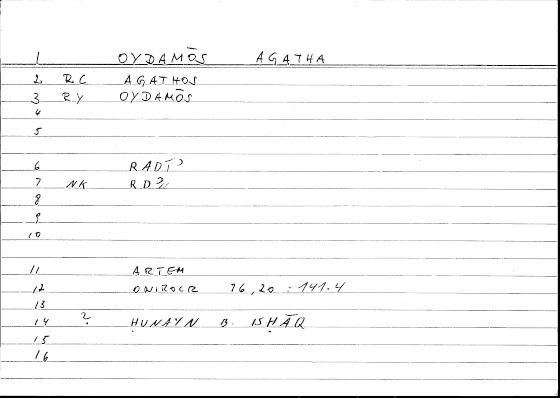 1 OYDAMŌS AGATHA
2 RC AGATHOS
3 RY OYDAMŌS
4
5
6 RADĪʾ
7 NK
8
9
10
11 ARTEM
12 ONIROCR 76,20 : 141.4
13
14 ? ḤUNAYN B. ISḤĀQ
15
16